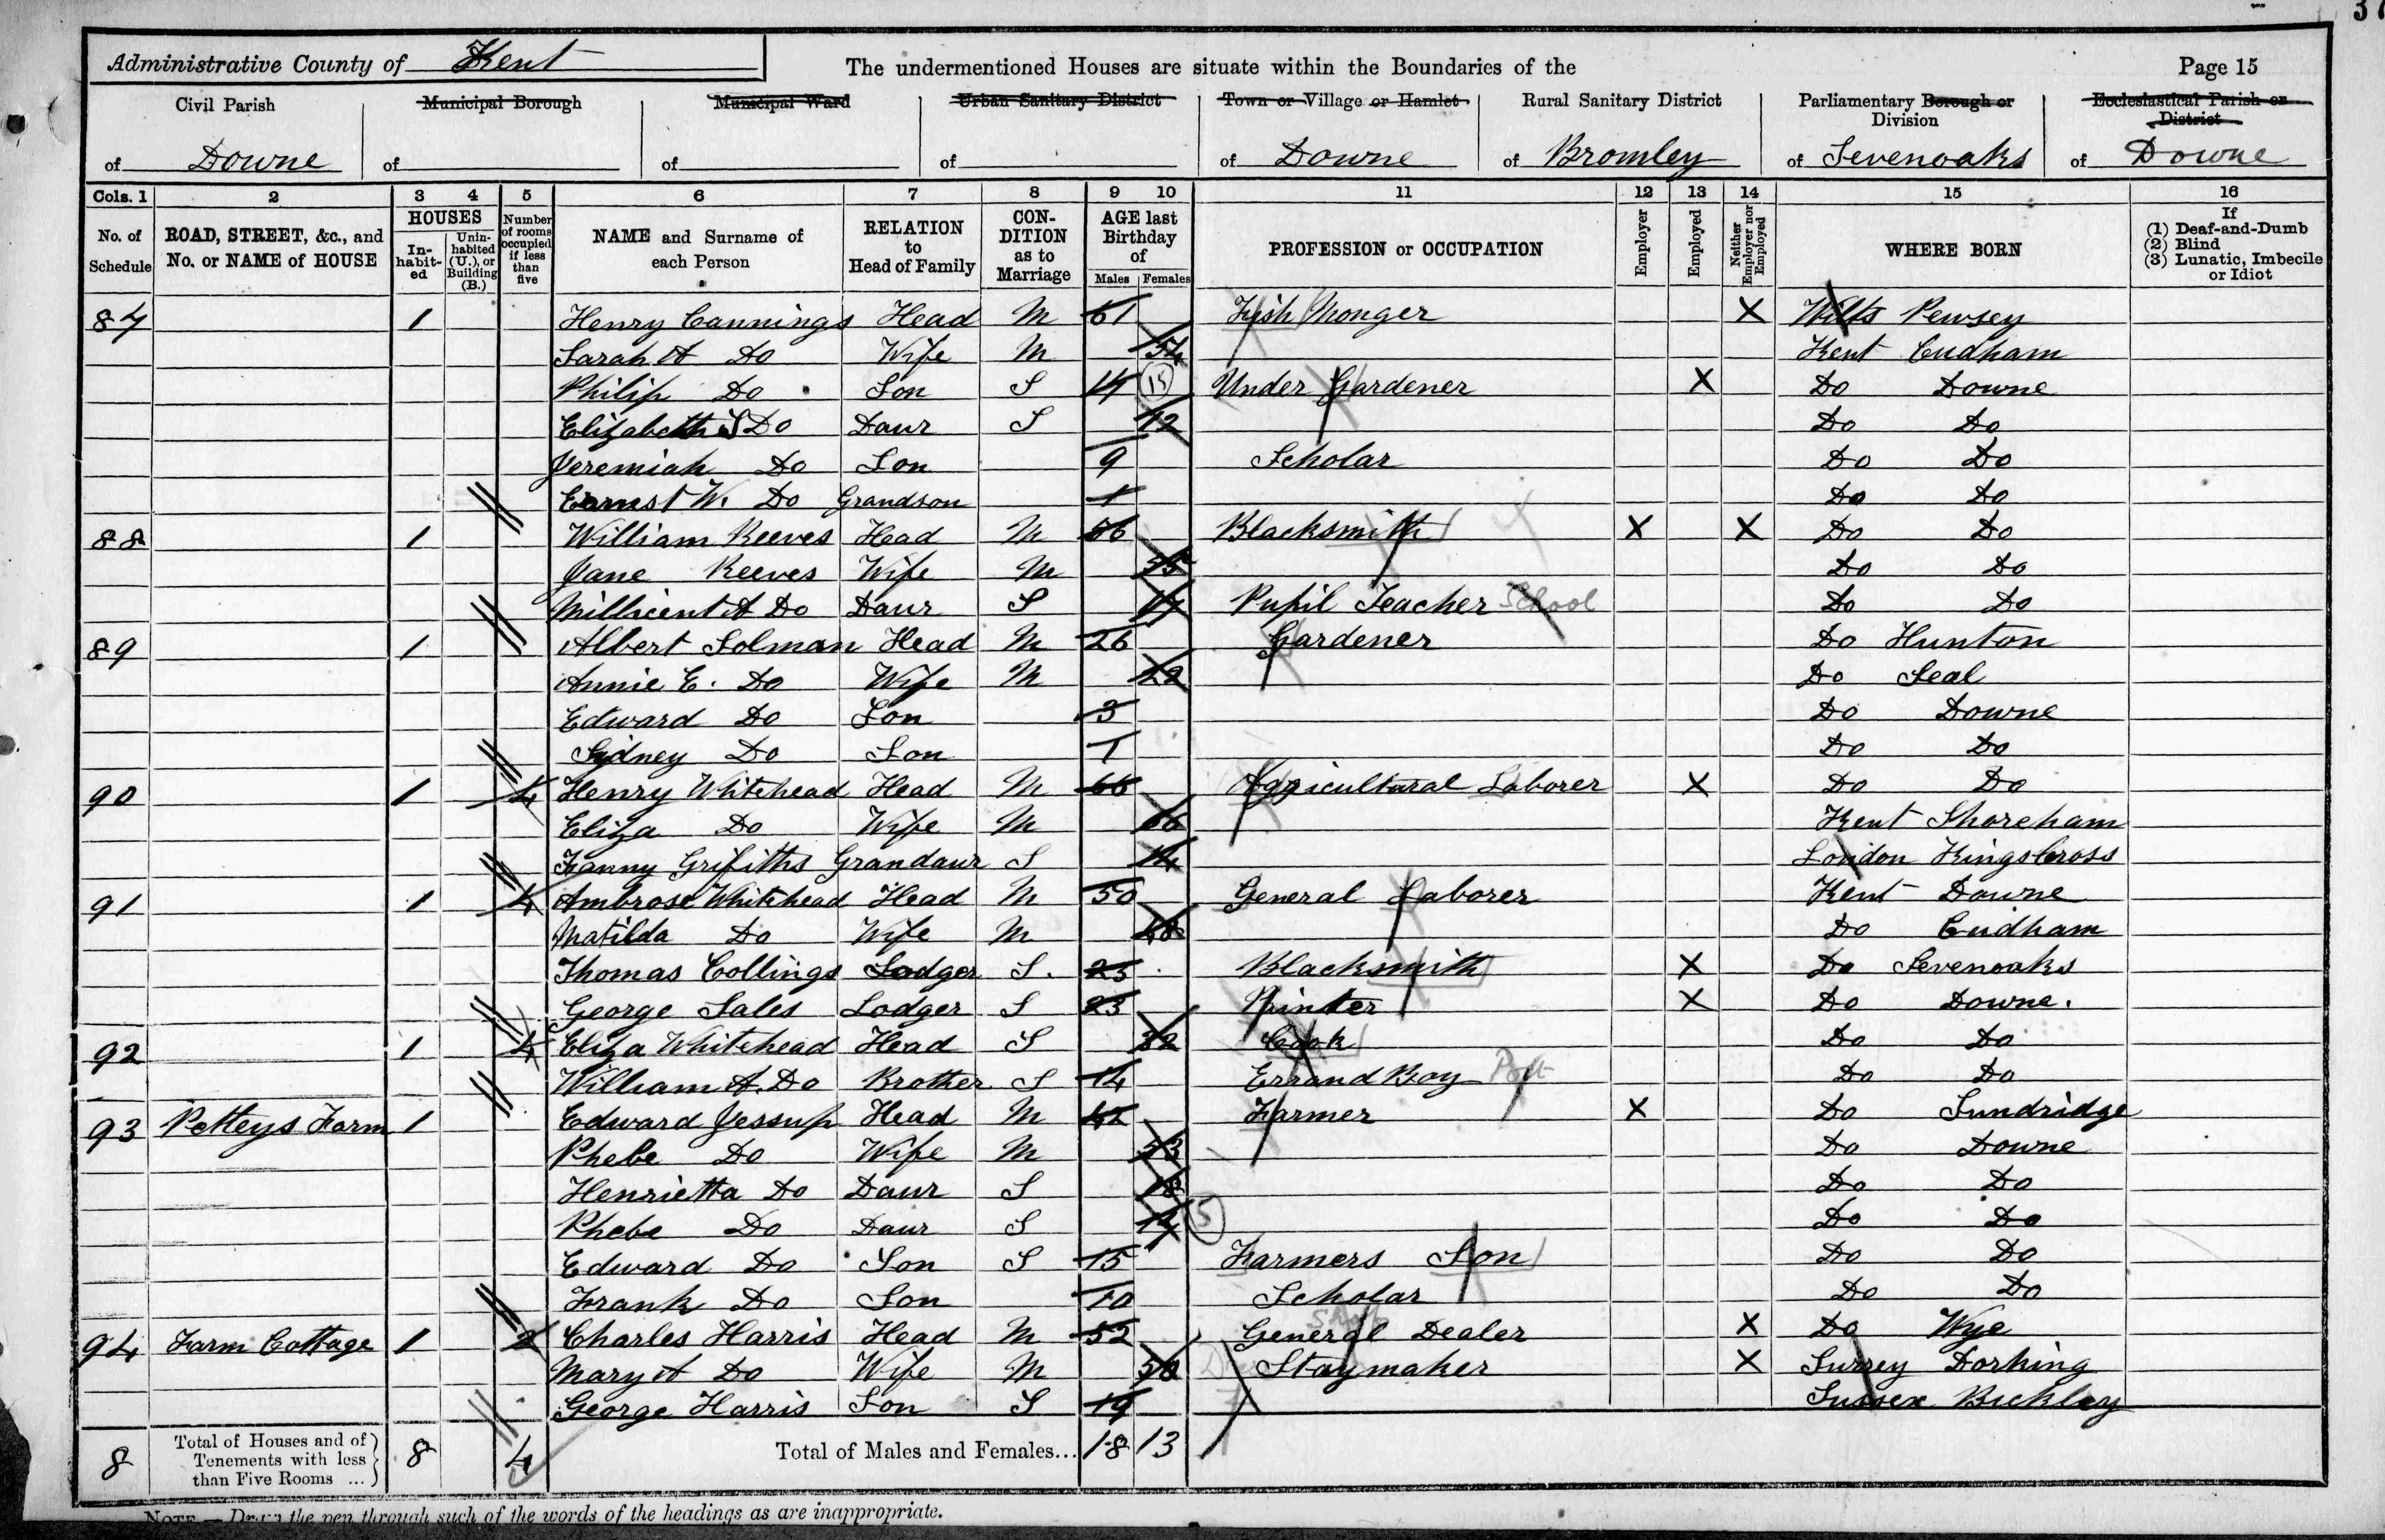 37
Administrative County of Kent The undermentioned Houses are situate within the Boundaries of the Page 15
Civil Parish Municipal Borough Municipal Ward Urban Sanitary District Town or Village or Hamlet Rural Sanitary District Parliamentary Borough or Division Ecclesiastical Parish or District
of Downe of of of of Downe of Bromley of Sevenoaks of Downe
Cols. 1 2 3 4 5 6 7 8 9 10 11 12 13 14 15 16
No. of Schedule ROAD, STREET, &c., and No. or NAME of HOUSE HOUSES In-habit-ed Unin-habited (U.), or Building (B.) Number of rooms occupied if less than five NAME and Surname of each Person RELATION to Head of Family CON-DITION as to Marriage AGE last Birthday of Males Females PROFESSION or OCCUPATION Employer Employed Neither Employer nor Employed WHERE BORN If (1) Deaf-and-Dumb (2) Blind (3) Lunatic, Imbecile or Idiot
87 1 Henry Cannings Head M 61 Fish Monger X Wilts Pewsey
Sarah A Do Wife M 54 Kent Cudham
Philip Do Son S 15 Under Gardener X Do Downe
Elizabeth S Do Daur S 12 Do Do
Jeremiah Do Son 9 Scholar Do Do
Ernest W. Do Grandson 1 Do Do
88 1 William Reeves Head M 56 Blacksmith X X Do Do
Jane Reeves Wife M 55 Do Do
Millicent A Do Daur S 17 Pupil Teacher School Do Do
89 1 Albert Solman Head M 26 Gardener Do Hunton
Annie E. Do Wife M 22 Do Seal
Edward Do Son 3 Do Downe
Sydney Do Son 1 Do Do
90 1 4 Henry Whitehead Head M 66 Agricultural Laborer X Do Do
Eliza Do Wife M 66 Kent Shoreham
Fanny Grifiths Grandaur S 14 London Kings Cross
91 1 4 Ambrose Whitehead Head M 50 General Laborer Kent Downe
Matilda Do Wife M 48 Do Cudham
Thomas Collings Lodger S. 23 Blacksmith X Do Sevenoaks
George Sales Lodger S 23 X Do Downe.
92 1 4 Eliza Whitehead Head S 32 Cook Do Do
William A. Do Brother S 14 Errand Boy Do Do
93 Petteys Farm 1 Edward Jessup Head M 42 Farmer X Do Sundridge
Phebe Do Wife M 53 Do Downe
Henrietta Do Daur S 18 Do Do
Phebe Do Daur S Do Do
Edward Do Son S 15 Farmers Son Do Do
Frank Do Son 10 Scholar Do Do
94 Farm Cottage 1 2 Charles Harris Head M 52 General Dealer X Do Wye
Mary A Do Wife M 50 Staymaker X Surrey Dorking
George Harris Son S 19 Sussex Buckley
8 Total of Houses and of Tenements with less than Five Rooms ... 8 4 Total of Males and Females... 18 13
NOTE.—Draw the pen through such of the words of the headings as are inappropriate.